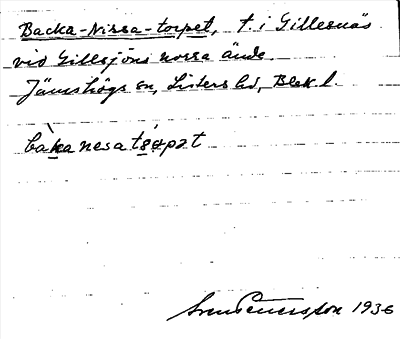 Backa-Nissa-torpet, t. i Gillesnäs
vid Gillsjöns norra ände.
Jämshögs sn, Listers hd, Blek. l.
bàkanesatɔ́rpət
Sven Benson 1936